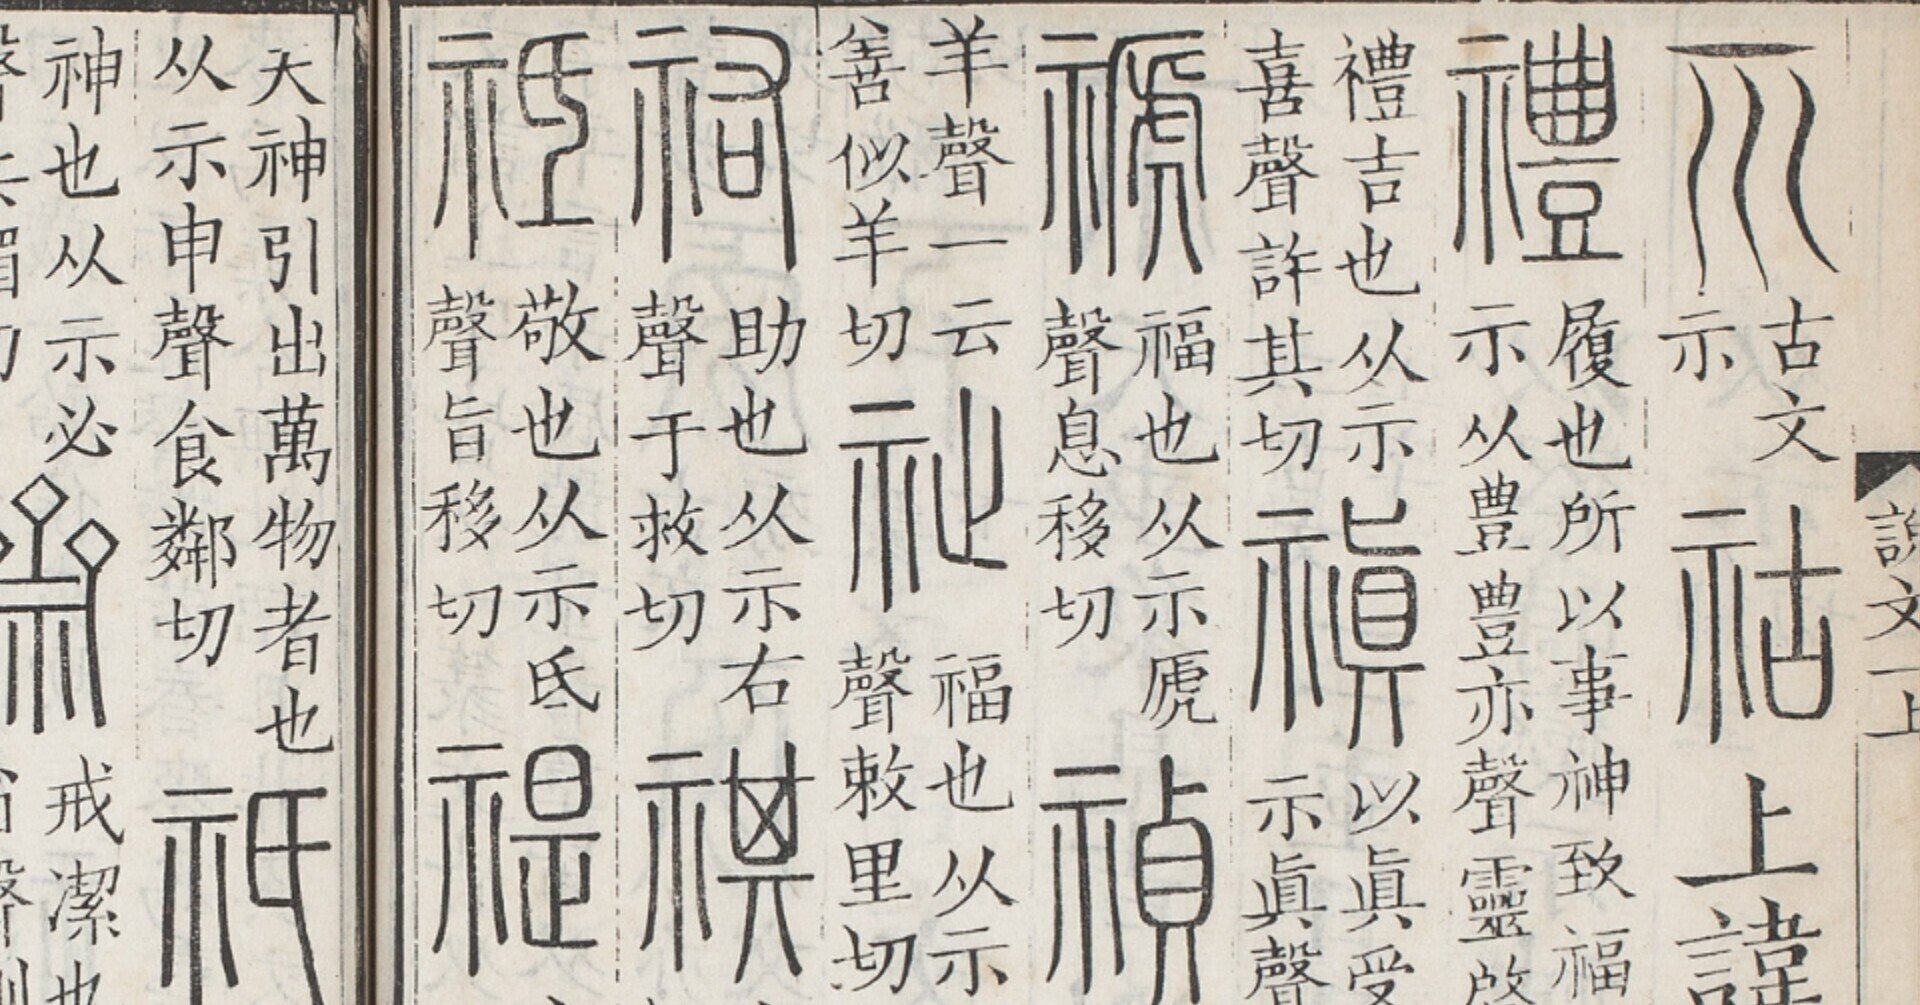 說文一上
示
古文
示
祜
上諱
禮
履也所以事神致福
示从豊豊亦聲靈啟
禮吉也从示
喜聲許其切
禛
以眞受
示眞聲
禠
福也从示虒
聲息移切
禎
羊聲一云
善似羊切
祉
福也从示
聲敕里切
祐
助也从示右
聲于救切
祺
祗
敬也从示氐
聲旨移切
禔
天神引出萬物者也
从示申聲食鄰切
祇
神也从示必
齋
戒潔也